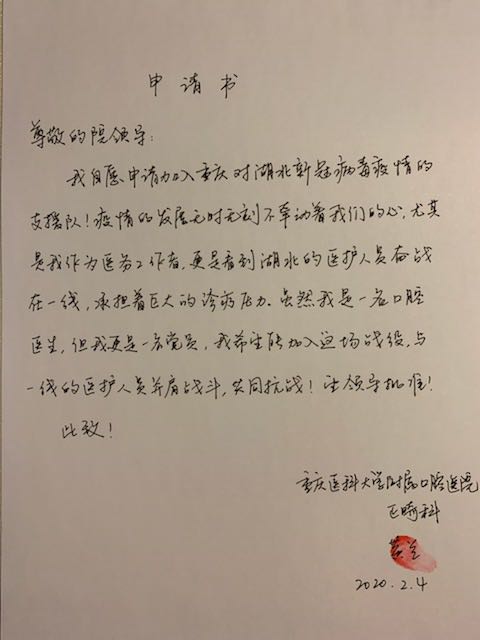 申请书
尊敬的院领导:
我自愿申请加入重庆对湖北新冠病毒疫情的
支援队!疫情的发展无时无刻不牵动着我们的心,尤其
是我作为医务工作者,更是看到湖北的医护人员奋战
在一线,承担着巨大的诊疗压力。虽然我是一名口腔
医生,但我更是一名党员,我希望能加入这场战役,与
一线的医护人员并肩战斗,共同抗战!望领导批准!
此致!
重庆医科大学附属口腔医院
正畸科
黄兰
2020.2.4